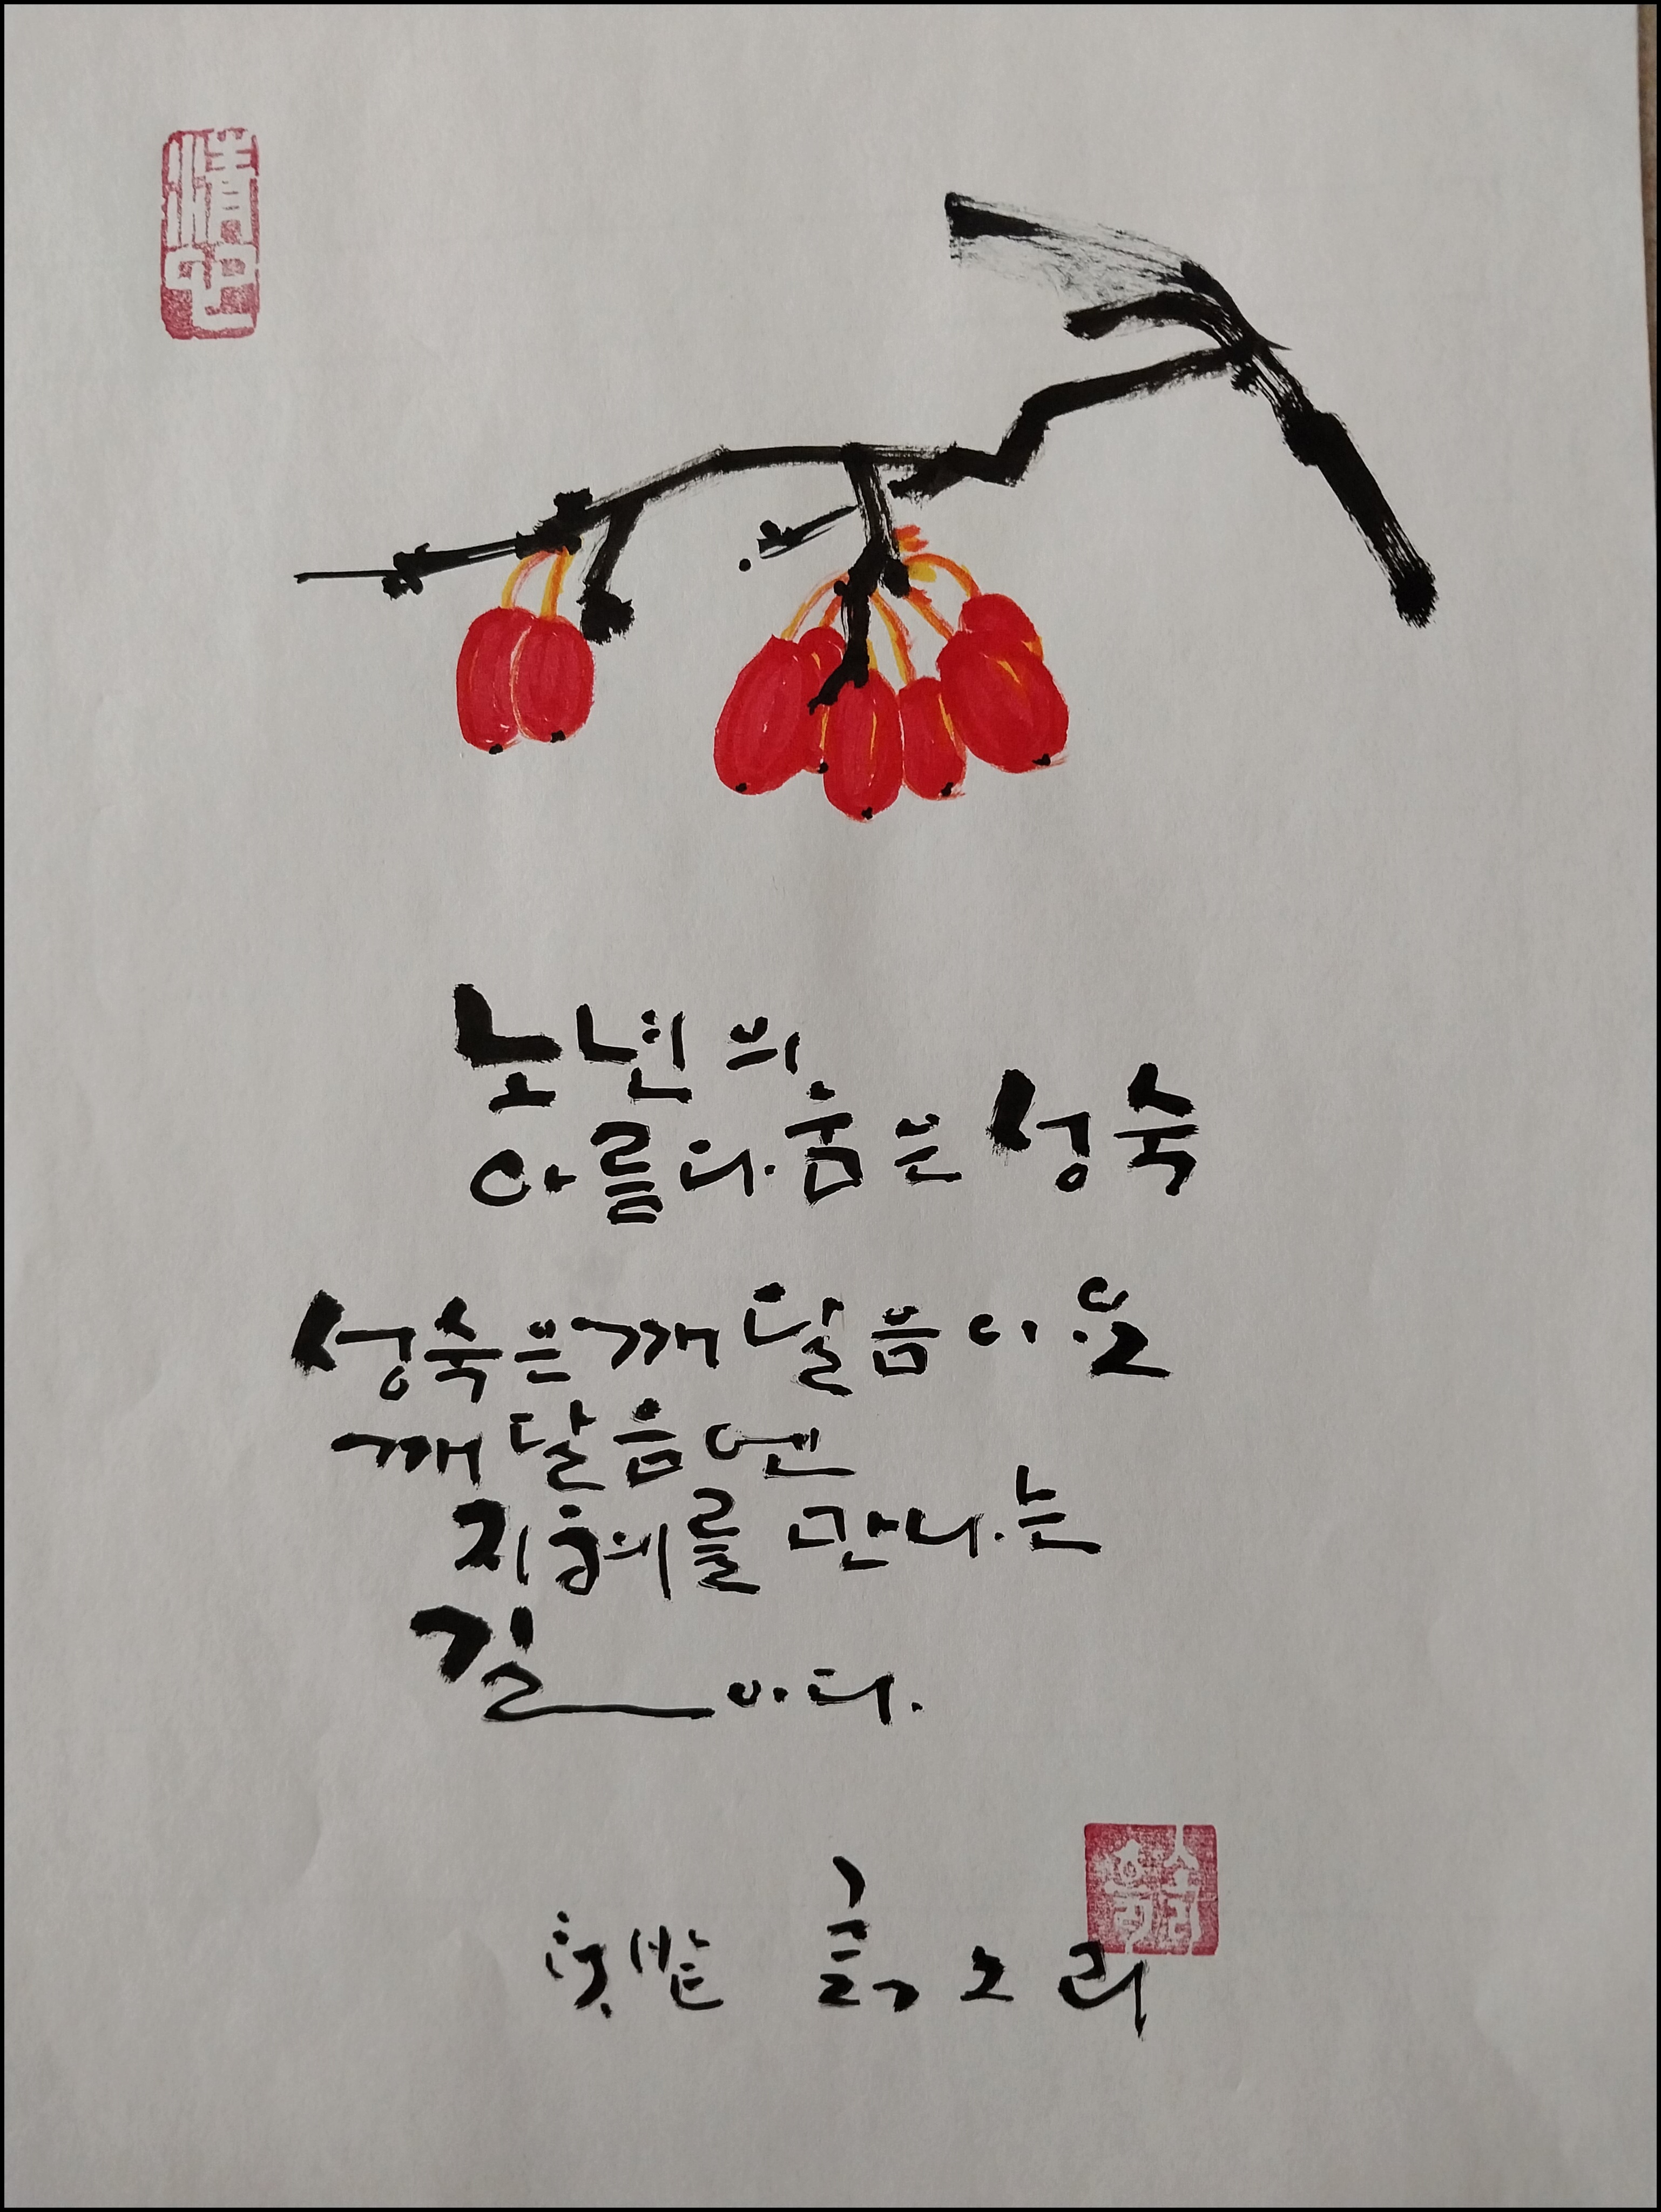 清心
노년의
아름다움은 성숙
성숙은 깨달음이요
깨달음엔
지혜를 만나는
길이다.
흙소리